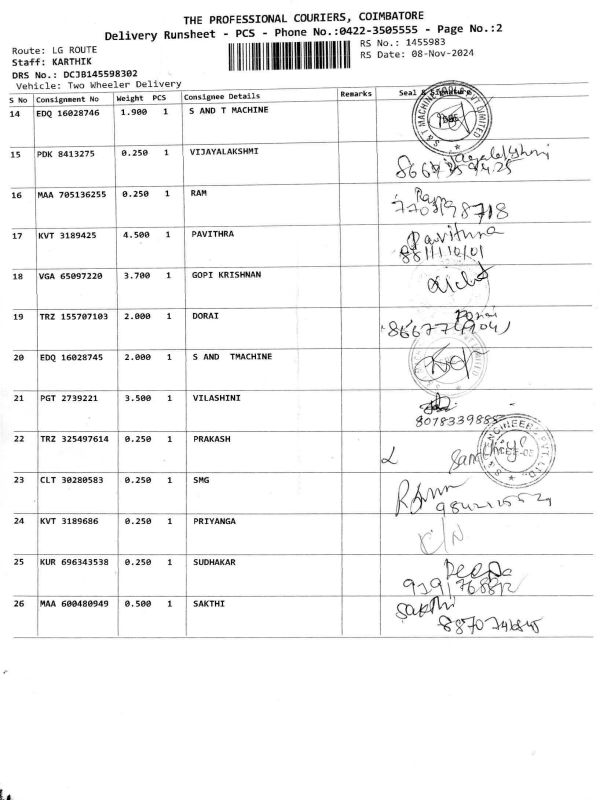 THE PROFESSIONAL COURIERS, COIMBATORE
Delivery Runsheet - PCS - Phone No.:0422-3505555 - Page No.:2
Route: LG ROUTE
RS No.: 1455983
Staff: KARTHIK
RS Date: 08-Nov-2024
DRS No.: DCJB145598302
Vehicle: Two Wheeler Delivery
S No Consignment No Weight PCS Consignee Details Remarks Seal & Signature
14 EDQ 16028746 1.900 1 S AND T MACHINE
15 PDK 8413275 0.250 1 VIJAYALAKSHMI
16 MAA 705136255 0.250 1 RAM
17 KVT 3189425 4.500 1 PAVITHRA Pavithra
18 VGA 65097220 3.700 1 GOPI KRISHNAN
19 TRZ 155707103 2.000 1 DORAI
20 EDQ 16028745 2.000 1 S AND TMACHINE
21 PGT 2739221 3.500 1 VILASHINI
22 TRZ 325497614 0.250 1 PRAKASH
23 CLT 30280583 0.250 1 SMG
24 KVT 3189686 0.250 1 PRIYANGA C/N
25 KUR 696343538 0.250 1 SUDHAKAR Deepa
26 MAA 600480949 0.500 1 SAKTHI Sakthi